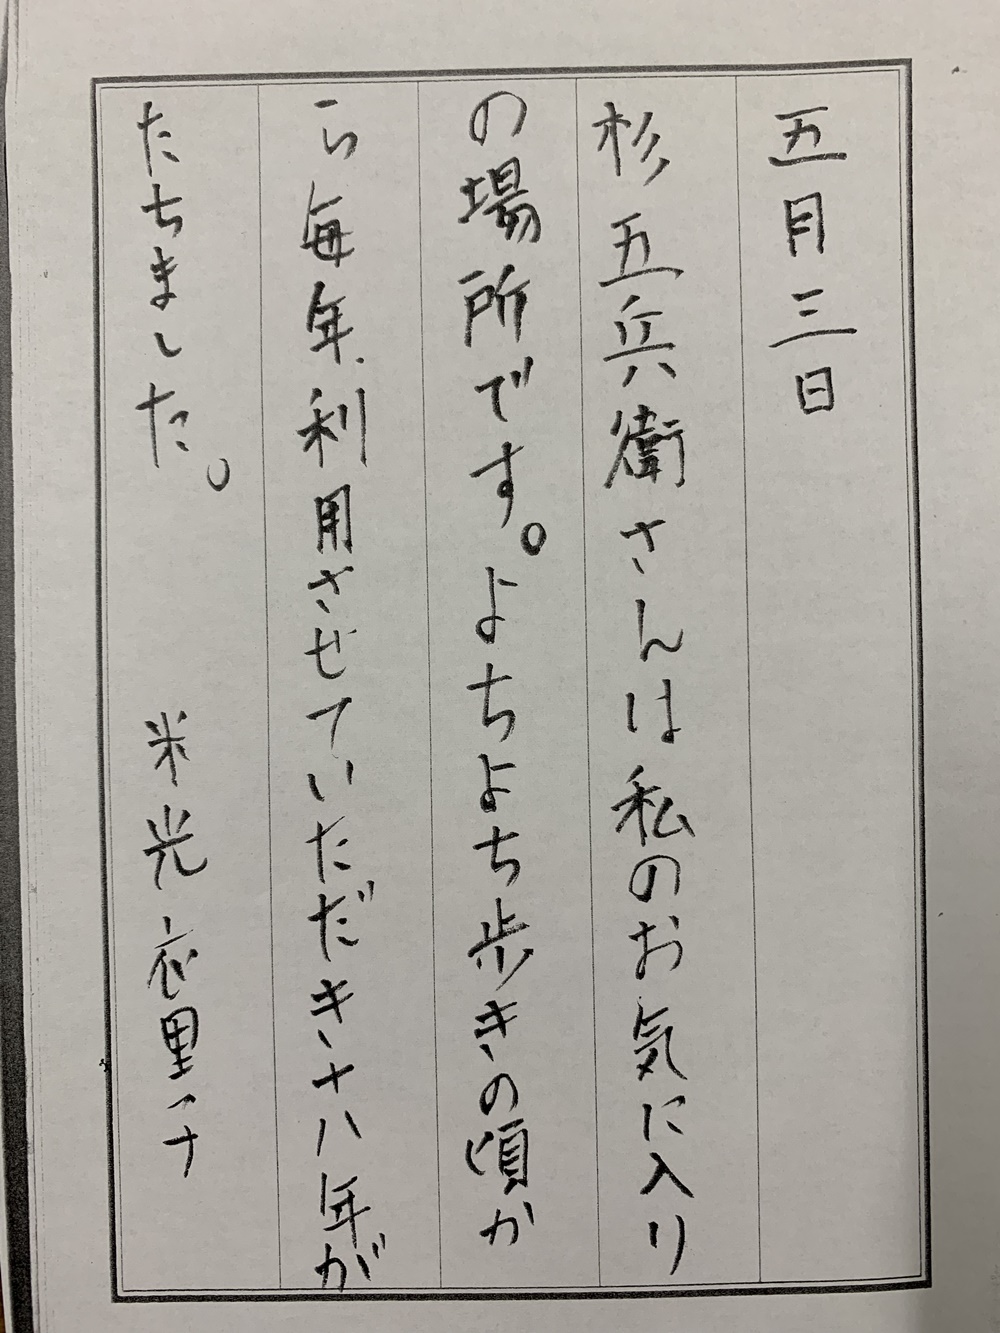 五月三日
杉五兵衛さんは私のお気に入り
の場所です。よちよち歩きの頃か
ら毎年利用させていただき十八年が
たちました。
米光衣里子